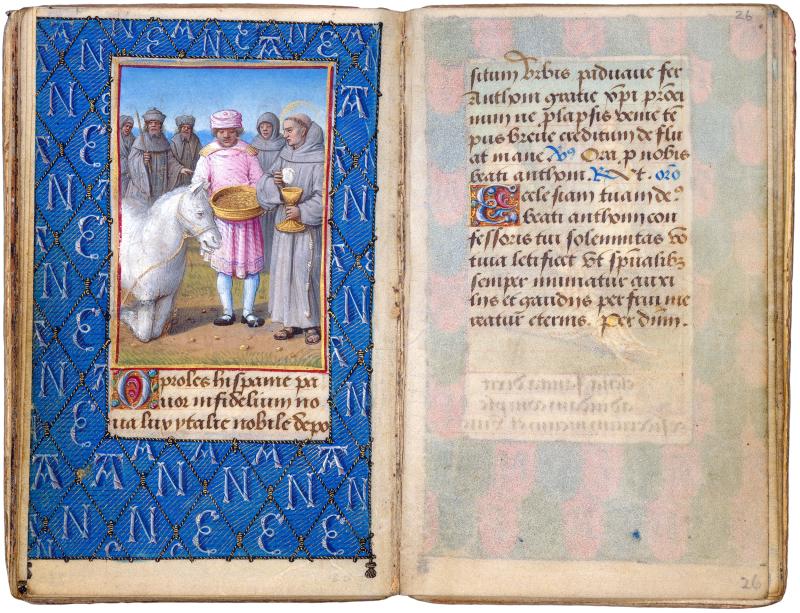 O proles hispanie pa
uor infidelium no
ua lux ytalie nobile depo
26
situm vrbis paduane fer
Anthoni gratie xpi proxi
mum ne prelapsis venie te
pus breue creditum deflu
at mane Vs Ora p nobis
beati anthoni. Rx Vt. oro
Ecclesiam tuam de9
beati anthoni con
fessoris tui solemnitas vo
tiua letificet vt spualibz
semper muniatur auxi
lijs et gaudijs perfrui me
reatur eternis. Per dnm.
26